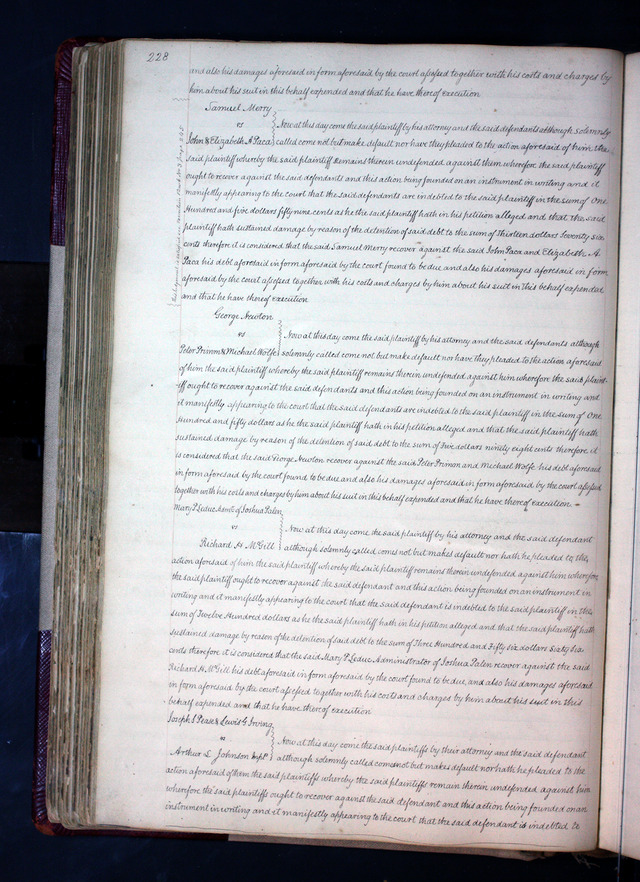 228
and also his damages aforesaid in form aforesaid by the court assessed together with his costs and charges by
him about his suit in this behalf expended and that he have thereof execution
Samuel Merry
vs
John & Elizabeth A Paca
Now at this day come the said plaintiff by his attorney and the said defendants although solemnly
called come not but make default nor have they pleaded to the action aforesaid of him the
said plaintiff whereby the said plaintiff remains therein undefended against them wherefore the said plaintiff
ought to recover against the said defendants and this action being founded on an instrument in writing and it
manifestly appearing to the court that the said defendants are indebted to the said plaintiff in the sum of One
Hundred and five dollars fifty nine cents as he the said plaintiff hath in his petition alleged and that the said
plaintiff hath sustained damage by reason of the detention of said debt to the sum of Thirteen dollars Seventy six
cents therefore it is considered that the said Samuel Merry recover against the said John Paca and Elizabeth A.
Paca his debt aforesaid in form aforesaid by the court found to be due and also his damages aforesaid in form
aforesaid by the court assessed together with his costs and charges by him about his suit in this behalf expended
and that he have thereof execution
George Newton
vs
Peter Primm & Michael Wolfe
Now at this day come the said plaintiff by his attorney and the said defendants although
solemnly called come not but make default nor have they pleaded to the action aforesaid
of him the said plaintiff whereby the said plaintiff remains therein undefended against him wherefore the said plaint-
iff ought to recover against the said defendants and this action being founded on an instrument in writing and
it manifestly appearing to the court that the said defendants are indebted to the said plaintiff in the sum of One
Hundred and fifty dollars as he the said plaintiff hath in his petition alleged and that the said plaintiff hath
sustained damage by reason of the detention of said debt to the sum of Five dollars ninety eight cents therefore it
is considered that the said George Newton recover against the said Peter Primm and Michael Wolfe his debt aforesaid
in form aforesaid by the court found to be due and also his damages aforesaid in form aforesaid by the court assessed
together with his costs and charges by him about his suit in this behalf expended and that he have thereof execution.
Mary P Leduc Admr. of Joshua Palen
vs
Richard H. McGill
Now at this day come the said plaintiff by his attorney and the said defendant
although solemnly called comes not but makes default nor hath he pleaded to the
action aforesaid of him the said plaintiff whereby the said plaintiff remains therein undefended against him wherefore
the said plaintiff ought to recover against the said defendant and this action being founded on an instrument in
writing and it manifestly appearing to the court that the said defendant is indebted to the said plaintiff in the
sum of Twelve Hundred dollars as he the said plaintiff hath in his petition alleged and that the said plaintiff hath
sustained damage by reason of the detention of said debt to the sum of Three Hundred and Fifty six dollars Sixty six
cents therefore it is considered that the said Mary P. Leduc Administrator of Joshua Palen recover against the said
Richard H. McGill his debt aforesaid in form aforesaid by the court found to be due, and also his damages aforesaid
in form aforesaid by the court assessed together with his costs and charges by him about his suit in this
behalf expended and that he have thereof execution
Joseph S Pease & Lewis G. Irving
vs
Arthur L Johnson
Now at this day come the said plaintiffs by their attorney and the said defendant
although solemnly called comes not but makes default nor hath he pleaded to the
action aforesaid of them the said plaintiffs whereby the said plaintiffs remain therein undefended against him
wherefore the said plaintiffs ought to recover against the said defendant and this action being founded on an
instrument in writing and it manifestly appearing to the court that the said defendant is indebted to